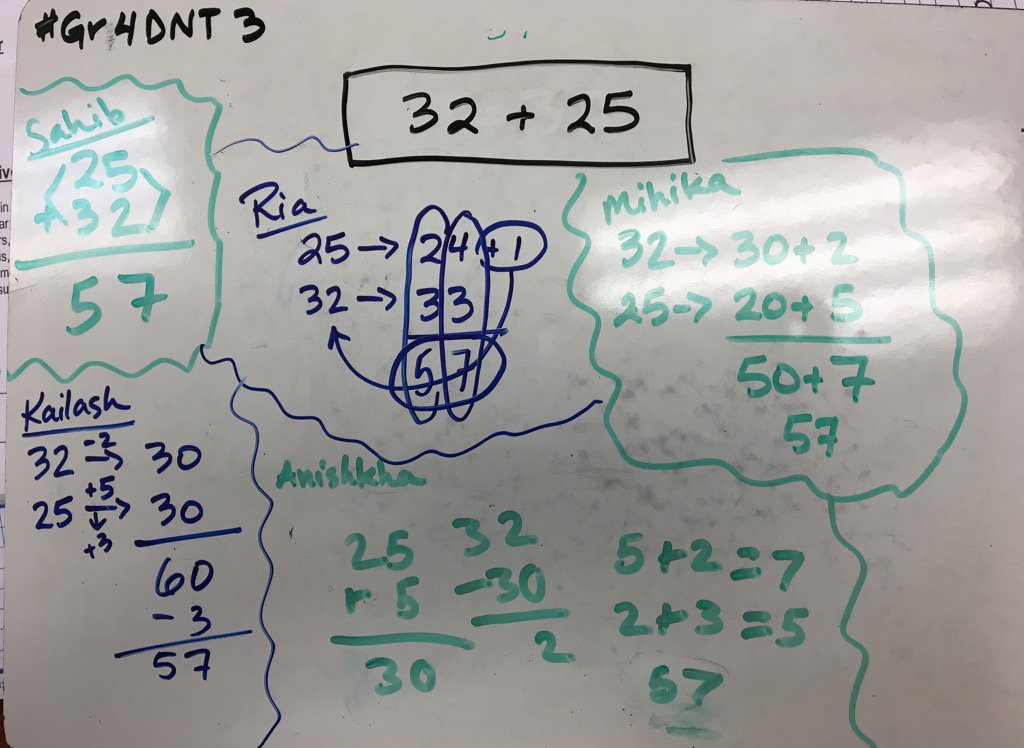 #Gr4DNT 3
32 + 25
Sahib
25
+32
57
Ria
25 → 24 + 1
32 → 33
57
Mihika
32 → 30 + 2
25 → 20 + 5
50 + 7
57
Kailash
32 -2 → 30
25 +5 → 30
↓
+3
60
- 3
57
Anishkha
25
+ 5
30
32
-30
2
5+2=7
2+3=5
57